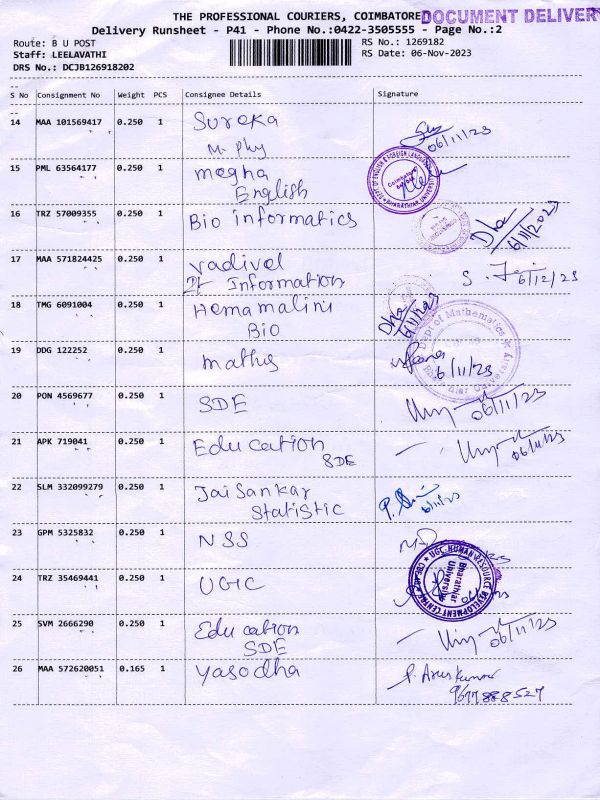 THE PROFESSIONAL COURIERS, COIMBATORE
DOCUMENT DELIVER
Delivery Runsheet - P41 - Phone No.:0422-3505555 - Page No.:2
Route: B U POST
RS No.: 1269182
Staff: LEELAVATHI
RS Date: 06-Nov-2023
DRS No.: DCJB126918202
S No Consignment No Weight PCS Consignee Details Signature
14 MAA 101569417 0.250 1 Sureka
M. Phy
06/11/23
15 PML 63564177 0.250 1 megha
English
16 TRZ 57009355 0.250 1 Bio informatics
6/11/2023
17 MAA 571824425 0.250 1 Vadivel
Information
6/12/23
18 TMG 6091004 0.250 1 Hemamalini
Bio
Dept of Mathematics
19 DDG 122252 0.250 1 maths
6/11/23
20 PON 4569677 0.250 1 SDE
06/11/23
21 APK 719041 0.250 1 Education
SDE
22 SLM 332099279 0.250 1 Jai Sankar
Statistic
23 GPM 5325832 0.250 1 NSS
24 TRZ 35469441 0.250 1 UGC
UGC-HUMAN RESOURCE DEVELOPMENT CENTRE
Bharathiar
University
25 SVM 2666290 0.250 1 Education
SDE
06/11/23
26 MAA 572620051 0.165 1 Yasodha
P. Arun kumar
9677888527